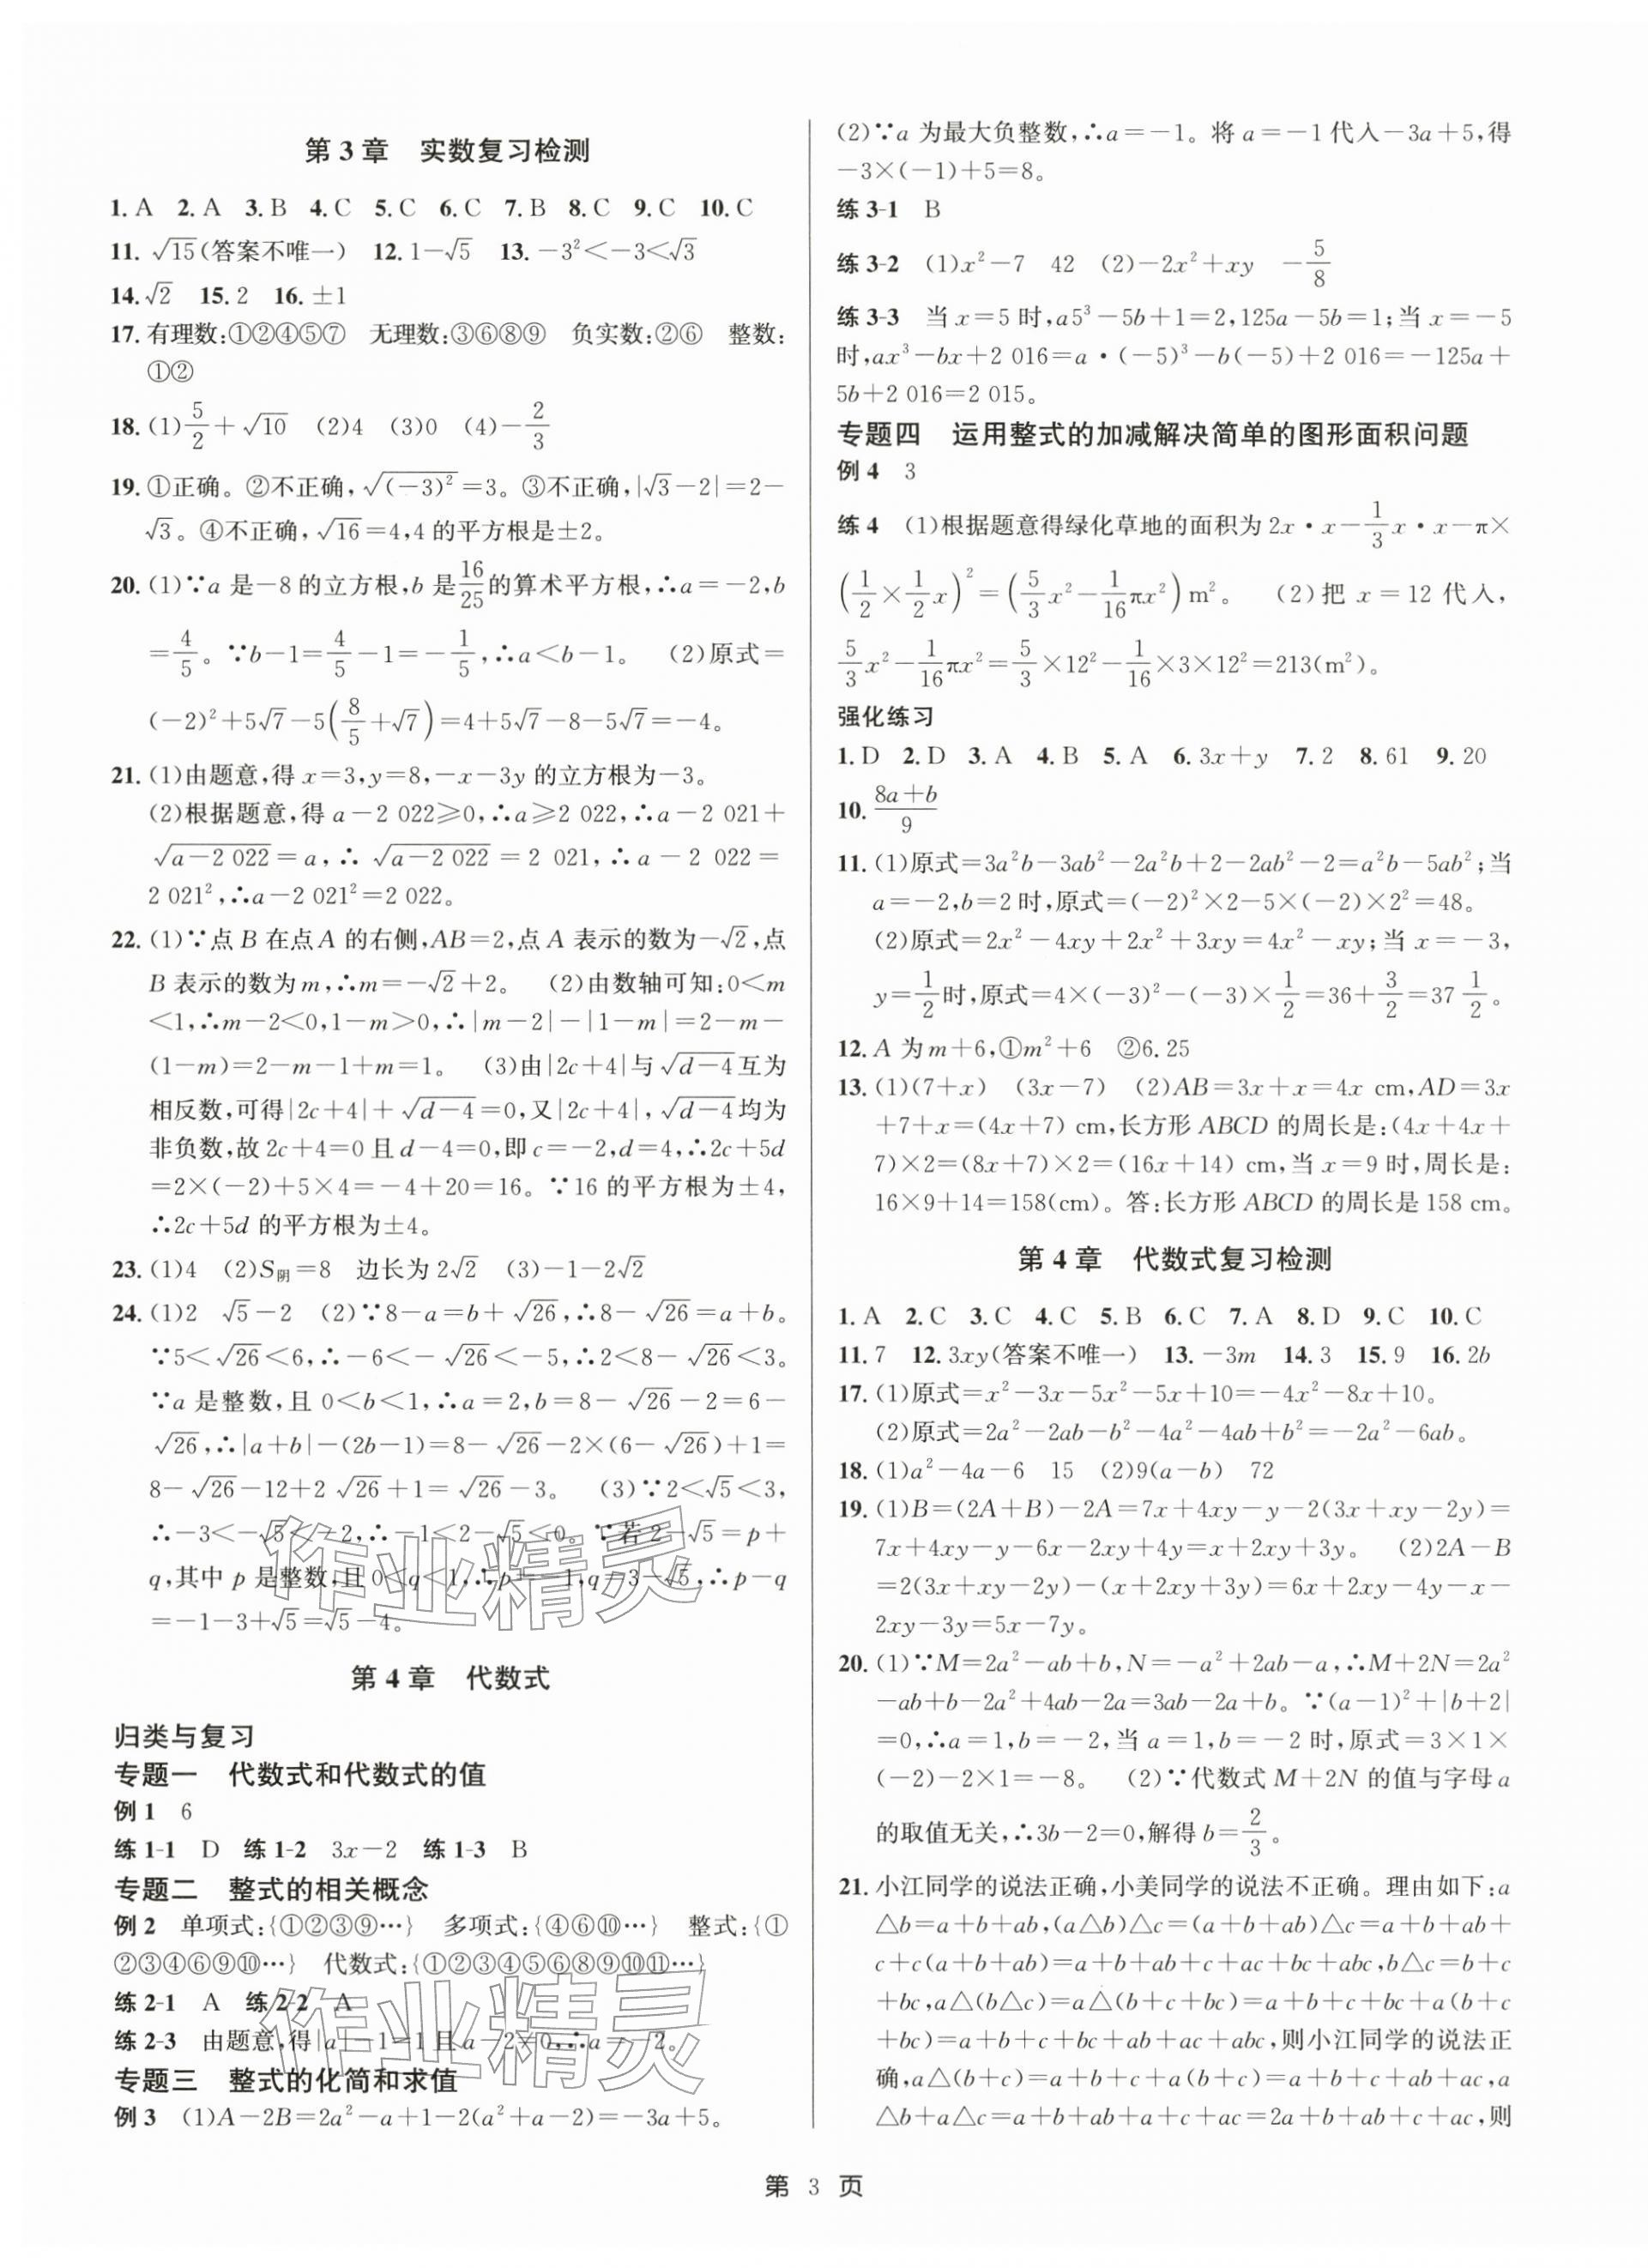 第3章　实数复习检测
1. A　2. A　3. B　4. C　5. C　6. C　7. B　8. C　9. C　10. C
11. √15(答案不唯一)　12. 1-√5　13. -3²<-3<√3
14. √2　15. 2　16. ±1
17. 有理数:①②④⑤⑦　无理数:③⑥⑧⑨　负实数:②⑥　整数:
①②
18. (1)5/2+√10　(2)4　(3)0　(4)-2/3
19. ①正确。②不正确,√(-3)²=3。③不正确,|√3-2|=2-
√3。④不正确,√16=4,4的平方根是±2。
20. (1)∵a是-8的立方根,b是16/25的算术平方根,∴a=-2,b
=4/5。∵b-1=4/5-1=-1/5,∴a<b-1。　(2)原式=
(-2)²+5√7-5(8/5+√7)=4+5√7-8-5√7=-4。
21. (1)由题意,得x=3,y=8,-x-3y的立方根为-3。
(2)根据题意,得a-2 022≥0,∴a≥2 022,∴a-2 021+
√(a-2 022)=a,∴√(a-2 022)=2 021,∴a-2 022=
2 021²,∴a-2 021²=2 022。
22. (1)∵点B在点A的右侧,AB=2,点A表示的数为-√2,点
B表示的数为m,∴m=-√2+2。　(2)由数轴可知:0<m
<1,∴m-2<0,1-m>0,∴|m-2|-|1-m|=2-m-
(1-m)=2-m-1+m=1。　(3)由|2c+4|与√(d-4)互为
相反数,可得|2c+4|+√(d-4)=0,又|2c+4|,√(d-4)均为
非负数,故2c+4=0且d-4=0,即c=-2,d=4,∴2c+5d
=2×(-2)+5×4=-4+20=16。∵16的平方根为±4,
∴2c+5d的平方根为±4。
23. (1)4　(2)S阴=8　边长为2√2　(3)-1-2√2
24. (1)2　√5-2　(2)∵8-a=b+√26,∴8-√26=a+b。
∵5<√26<6,∴-6<-√26<-5,∴2<8-√26<3。
∵a是整数,且0<b<1,∴a=2,b=8-√26-2=6-
√26,∴|a+b|-(2b-1)=8-√26-2×(6-√26)+1=
8-√26-12+2√26+1=√26-3。　(3)∵2<√5<3,
∴-3<-√5<-2,∴-1<2-√5<0。∵若2-√5=p+
q,其中p是整数,且0<q<1,∴p=-1,q=3-√5,∴p-q
=-1-3+√5=√5-4。
第4章　代数式
归类与复习
专题一　代数式和代数式的值
例1　6
练1-1　D　练1-2　3x-2　练1-3　B
专题二　整式的相关概念
例2　单项式:{①②③⑨…}　多项式:{④⑥⑩…}　整式:{①
②③④⑥⑨⑩…}　代数式:{①②③④⑤⑥⑧⑨⑩⑪…}
练2-1　A　练2-2　A
练2-3　由题意,得|a|-1=1且a-2≠0,∴a=-2。
专题三　整式的化简和求值
例3　(1)A-2B=2a²-a+1-2(a²+a-2)=-3a+5。
(2)∵a为最大负整数,∴a=-1。将a=-1代入-3a+5,得
-3×(-1)+5=8。
练3-1　B
练3-2　(1)x²-7　42　(2)-2x²+xy　-5/8
练3-3　当x=5时,a5³-5b+1=2,125a-5b=1;当x=-5
时,ax³-bx+2 016=a·(-5)³-b(-5)+2 016=-125a+
5b+2 016=2 015。
专题四　运用整式的加减解决简单的图形面积问题
例4　3
练4　(1)根据题意得绿化草地的面积为2x·x-1/3x·x-π×
(1/2×1/2x)²=(5/3x²-1/16πx²)m²。　(2)把x=12代入,
5/3x²-1/16πx²=5/3×12²-1/16×3×12²=213(m²)。
强化练习
1. D　2. D　3. A　4. B　5. A　6. 3x+y　7. 2　8. 61　9. 20
10. (8a+b)/9
11. (1)原式=3a²b-3ab²-2a²b+2-2ab²-2=a²b-5ab²;当
a=-2,b=2时,原式=(-2)²×2-5×(-2)×2²=48。
(2)原式=2x²-4xy+2x²+3xy=4x²-xy;当x=-3,
y=1/2时,原式=4×(-3)²-(-3)×1/2=36+3/2=37 1/2。
12. A为m+6,①m²+6　②6.25
13. (1)(7+x)　(3x-7)　(2)AB=3x+x=4x cm,AD=3x
+7+x=(4x+7) cm,长方形ABCD的周长是:(4x+4x+
7)×2=(8x+7)×2=(16x+14) cm,当x=9时,周长是:
16×9+14=158(cm)。答:长方形ABCD的周长是158 cm。
第4章　代数式复习检测
1. A　2. C　3. C　4. C　5. B　6. C　7. A　8. D　9. C　10. C
11. 7　12. 3xy(答案不唯一)　13. -3m　14. 3　15. 9　16. 2b
17. (1)原式=x²-3x-5x²-5x+10=-4x²-8x+10。
(2)原式=2a²-2ab-b²-4a²-4ab+b²=-2a²-6ab。
18. (1)a²-4a-6　15　(2)9(a-b)　72
19. (1)B=(2A+B)-2A=7x+4xy-y-2(3x+xy-2y)=
7x+4xy-y-6x-2xy+4y=x+2xy+3y。　(2)2A-B
=2(3x+xy-2y)-(x+2xy+3y)=6x+2xy-4y-x-
2xy-3y=5x-7y。
20. (1)∵M=2a²-ab+b,N=-a²+2ab-a,∴M+2N=2a²
-ab+b-2a²+4ab-2a=3ab-2a+b。∵(a-1)²+|b+2|
=0,∴a=1,b=-2,当a=1,b=-2时,原式=3×1×
(-2)-2×1=-8。　(2)∵代数式M+2N的值与字母a
的取值无关,∴3b-2=0,解得b=2/3。
21. 小江同学的说法正确,小美同学的说法不正确。理由如下:a
△b=a+b+ab,(a△b)△c=(a+b+ab)△c=a+b+ab+
c+c(a+b+ab)=a+b+ab+c+ac+bc+abc,b△c=b+c
+bc,a△(b△c)=a△(b+c+bc)=a+b+c+bc+a(b+c
+bc)=a+b+c+bc+ab+ac+abc,则小江同学的说法正
确,a△(b+c)=a+b+c+a(b+c)=a+b+c+ab+ac,a
△b+a△c=a+b+ab+a+c+ac=2a+b+ab+c+ac,则
第 3 页
作业精灵
作业精灵